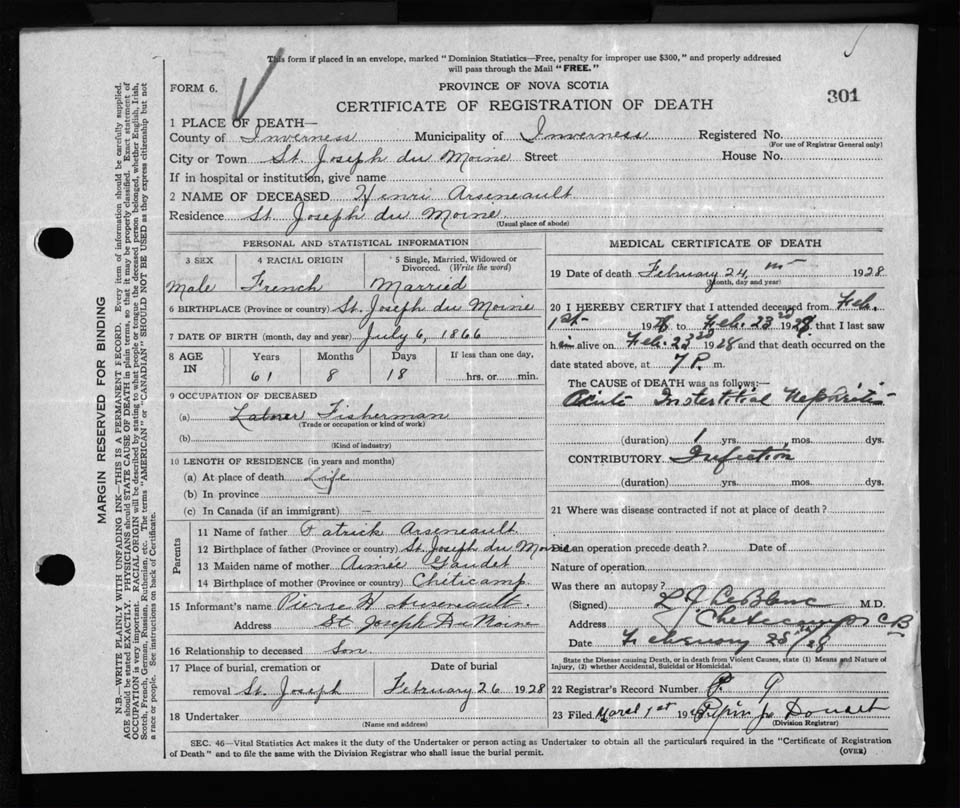 This form if placed in an envelope, marked "Dominion Statistics—Free, penalty for improper use $300," and properly addressed
will pass through the Mail "FREE."
FORM 6.
PROVINCE OF NOVA SCOTIA
CERTIFICATE OF REGISTRATION OF DEATH
301
1 PLACE OF DEATH—
County of Inverness Municipality of Inverness Registered No.
(For use of Registrar General only)
City or Town St. Joseph du Moine Street House No.
If in hospital or institution, give name
2 NAME OF DECEASED Henri Arseneault
Residence St. Joseph du Moine
(Usual place of abode)
PERSONAL AND STATISTICAL INFORMATION
3 SEX 4 RACIAL ORIGIN 5 Single, Married, Widowed or
Divorced. (Write the word)
Male French Married
6 BIRTHPLACE (Province or country) St. Joseph du Moine
7 DATE OF BIRTH (month, day and year) July 6, 1866
8 AGE IN Years Months Days If less than one day,
61 8 18 hrs. or min.
9 OCCUPATION OF DECEASED
(a) Fisherman
(Trade or occupation or kind of work)
(b)
(Kind of industry)
10 LENGTH OF RESIDENCE (in years and months)
(a) At place of death Life
(b) In province
(c) In Canada (if an immigrant) —
Parents
11 Name of father Patrick Arseneault
12 Birthplace of father (Province or country) St. Joseph du Moine
13 Maiden name of mother Aimée Gaudet
14 Birthplace of mother (Province or country) Cheticamp
15 Informant's name Pierre H Arseneault.
Address St Joseph Du Moine
16 Relationship to deceased Son
17 Place of burial, cremation or Date of burial
removal St. Joseph February 26 1928
18 Undertaker
(Name and address)
MEDICAL CERTIFICATE OF DEATH
19 Date of death February 24, 1928
(Month, day and year)
20 I HEREBY CERTIFY that I attended deceased from Feb.
1st 1928 to Feb. 23rd 1928, that I last saw
him alive on Feb. 23rd 1928 and that death occurred on the
date stated above, at 7 P. m.
The CAUSE OF DEATH was as follows:—
Acute Interstitial Nephritis
(duration) 1 yrs. mos. dys.
CONTRIBUTORY Infection
(duration) yrs. mos. dys.
21 Where was disease contracted if not at place of death?
Did an operation precede death? Date of
Nature of operation
Was there an autopsy?
(Signed) L J LeBlanc M.D.
Address Cheticamp C B
Date February 25/28
State the Disease causing Death, or in death from Violent Causes, state (1) Means and Nature of
Injury, (2) whether Accidental, Suicidal or Homicidal.
22 Registrar's Record Number
23 Filed March 1st 19
(Division Registrar)
SEC. 46—Vital Statistics Act makes it the duty of the Undertaker or person acting as Undertaker to obtain all the particulars required in the "Certificate of Registration
of Death" and to file the same with the Division Registrar who shall issue the burial permit.
(OVER)
MARGIN RESERVED FOR BINDING
N.B.—WRITE PLAINLY, WITH UNFADING INK—THIS IS A PERMANENT RECORD. Every item of information should be carefully supplied.
AGE should be stated EXACTLY. PHYSICIANS should STATE CAUSE OF DEATH in plain terms, so that it may be properly classified. Exact statement of
OCCUPATION is very important. RACIAL ORIGIN will be described by stating to what people or tongue the deceased person belonged, whether English, Irish,
Scotch, French, German, Russian, Ruthenian, etc. The terms "AMERICAN" or "CANADIAN" SHOULD NOT BE USED as they express citizenship but not
a race or people. See instructions on back of Certificate.